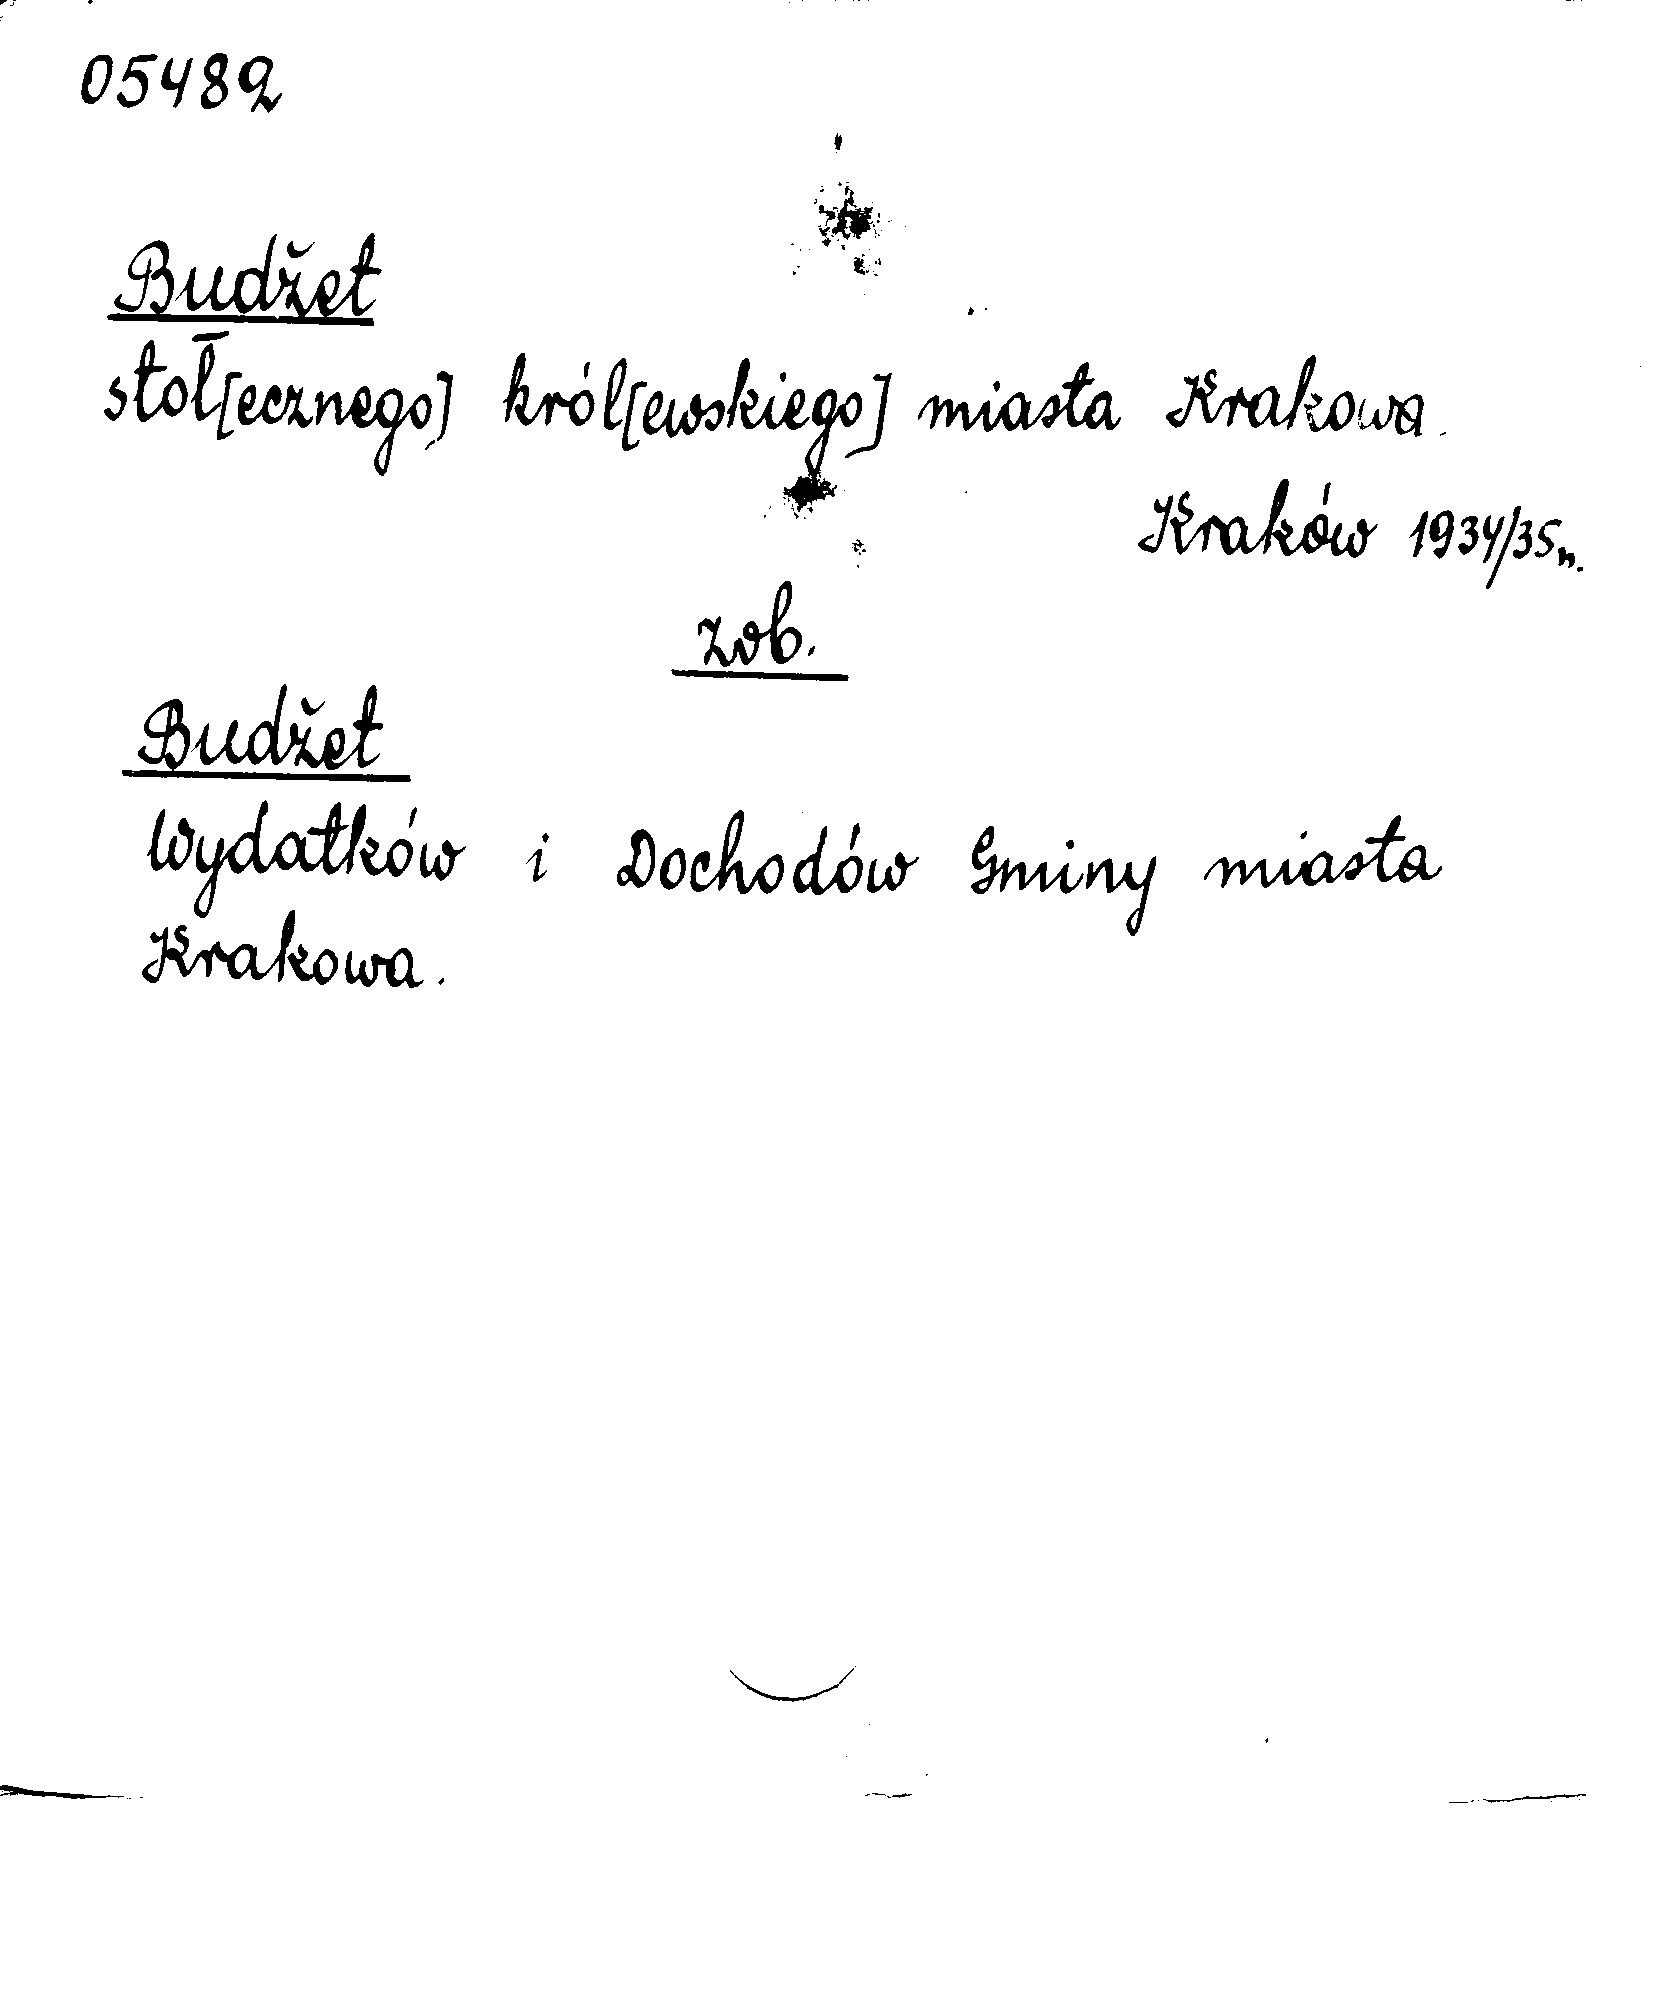 05482
Budżet
stoł[ecznego] król[ewskiego] miasta Krakowa.
Kraków 1934/35n.
zob.
Budżet
Wydatków i Dochodów Gminy miasta
Krakowa.